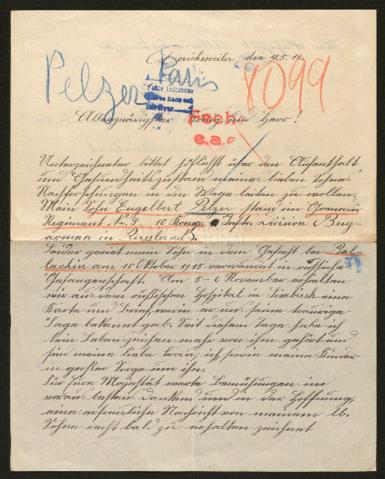 Berschweiler, den 9.5.16.
Pelzer Paris
8099
Allergnädigster König und Herr!
Unterzeichneter bittet höflichst über den Aufenthalt
und Gesundheitszustand meines lieben Sohnes
Nachforschungen in die Wege leiten zu wollen.
Mein Sohn Engelbert Pelzer stand im Grenadier
Regiment № 9 10 Komp. Division Bug-
armee in Russland.
Leider geriet mein Sohn in dem Gefecht bei
am 15 Oktober 1915 verwundet in russische
Gefangenschaft. Am 5-6 November erhielten
wir aus dem russischen Hospital in Simbirsk eine
Karte und Brief, worin er uns seine traurige
Lage bekannt gab. Seit diesem Tage habe ich
kein Lebenszeichen mehr von ihm gehört und
sein meine liebe Frau, ich sowie meine Kinder
in großer Sorge um ihn.
Für Eure Majestät werte Bemühungen im
voraus bestens dankend und in der Hoffnung,
eine erfreuliche Nachricht von meinem lb.
Sohne recht bald zu erhalten zeichnet